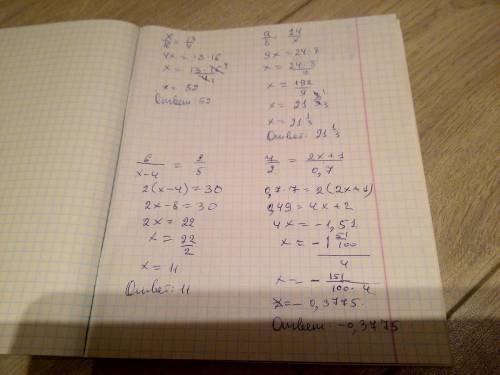 x/16 = 13/4
4x = 13·16
x = 13·16/4
x = 52
Ответ: 52
9/8 = 24/x
9x = 24·8
x = 24·8/9
x = 192/9
x = 21 3/9
x = 21 1/3
Ответ: 21 1/3
6/(x-4) = 2/5
2(x-4) = 30
2x-8 = 30
2x = 22
x = 22/2
x = 11
Ответ: 11
7/2 = (2x+1)/0,7
0,7·7 = 2(2x+1)
0,49 = 4x+2
4x = -1,51
x = -1 51/100 / 4
x = - 151/(100·4)
x = - 0,3775
Ответ: -0,3775